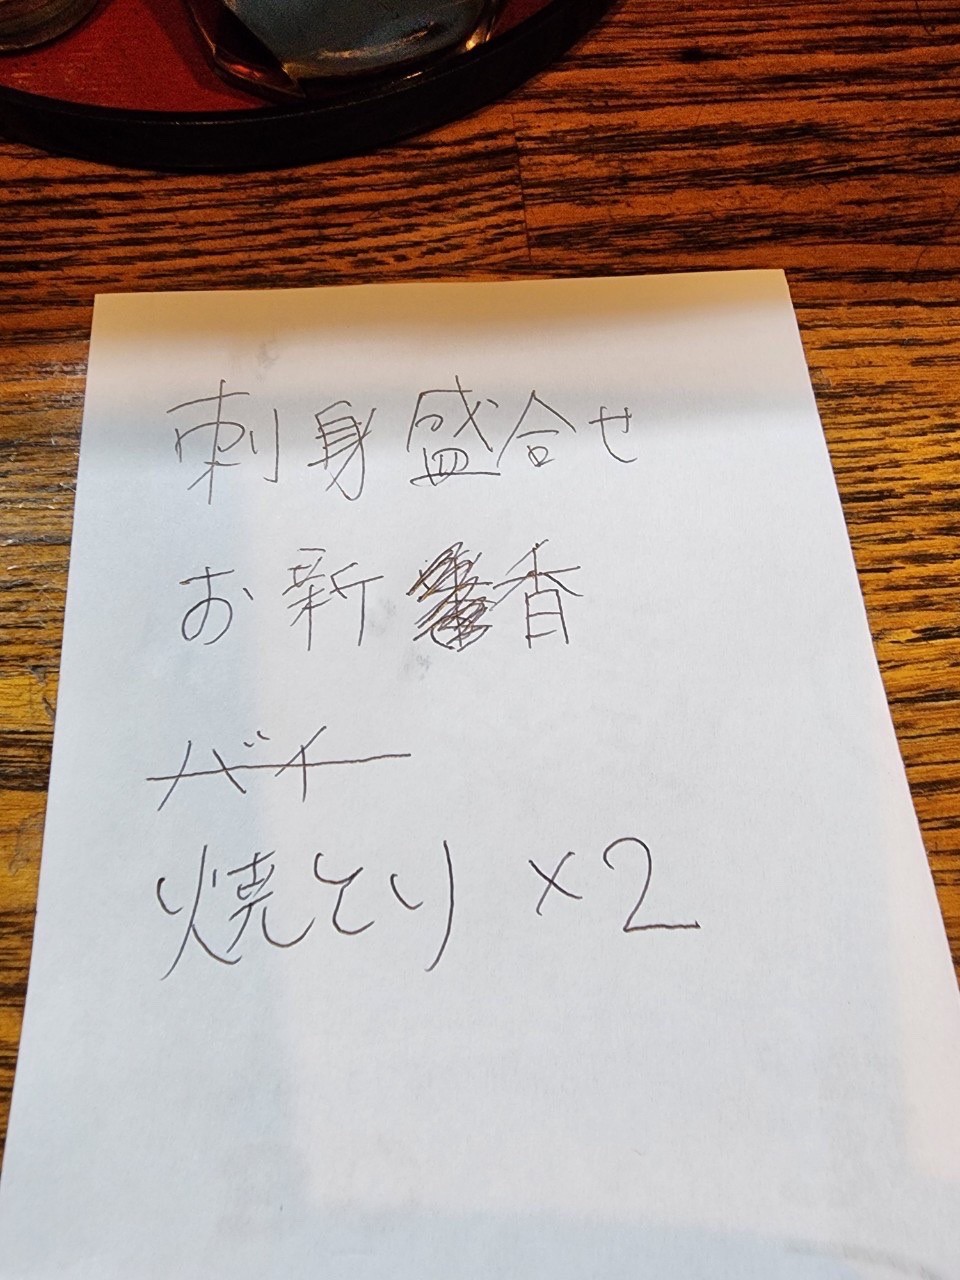 刺身盛合せ
お新香
バイ
焼とり ×2